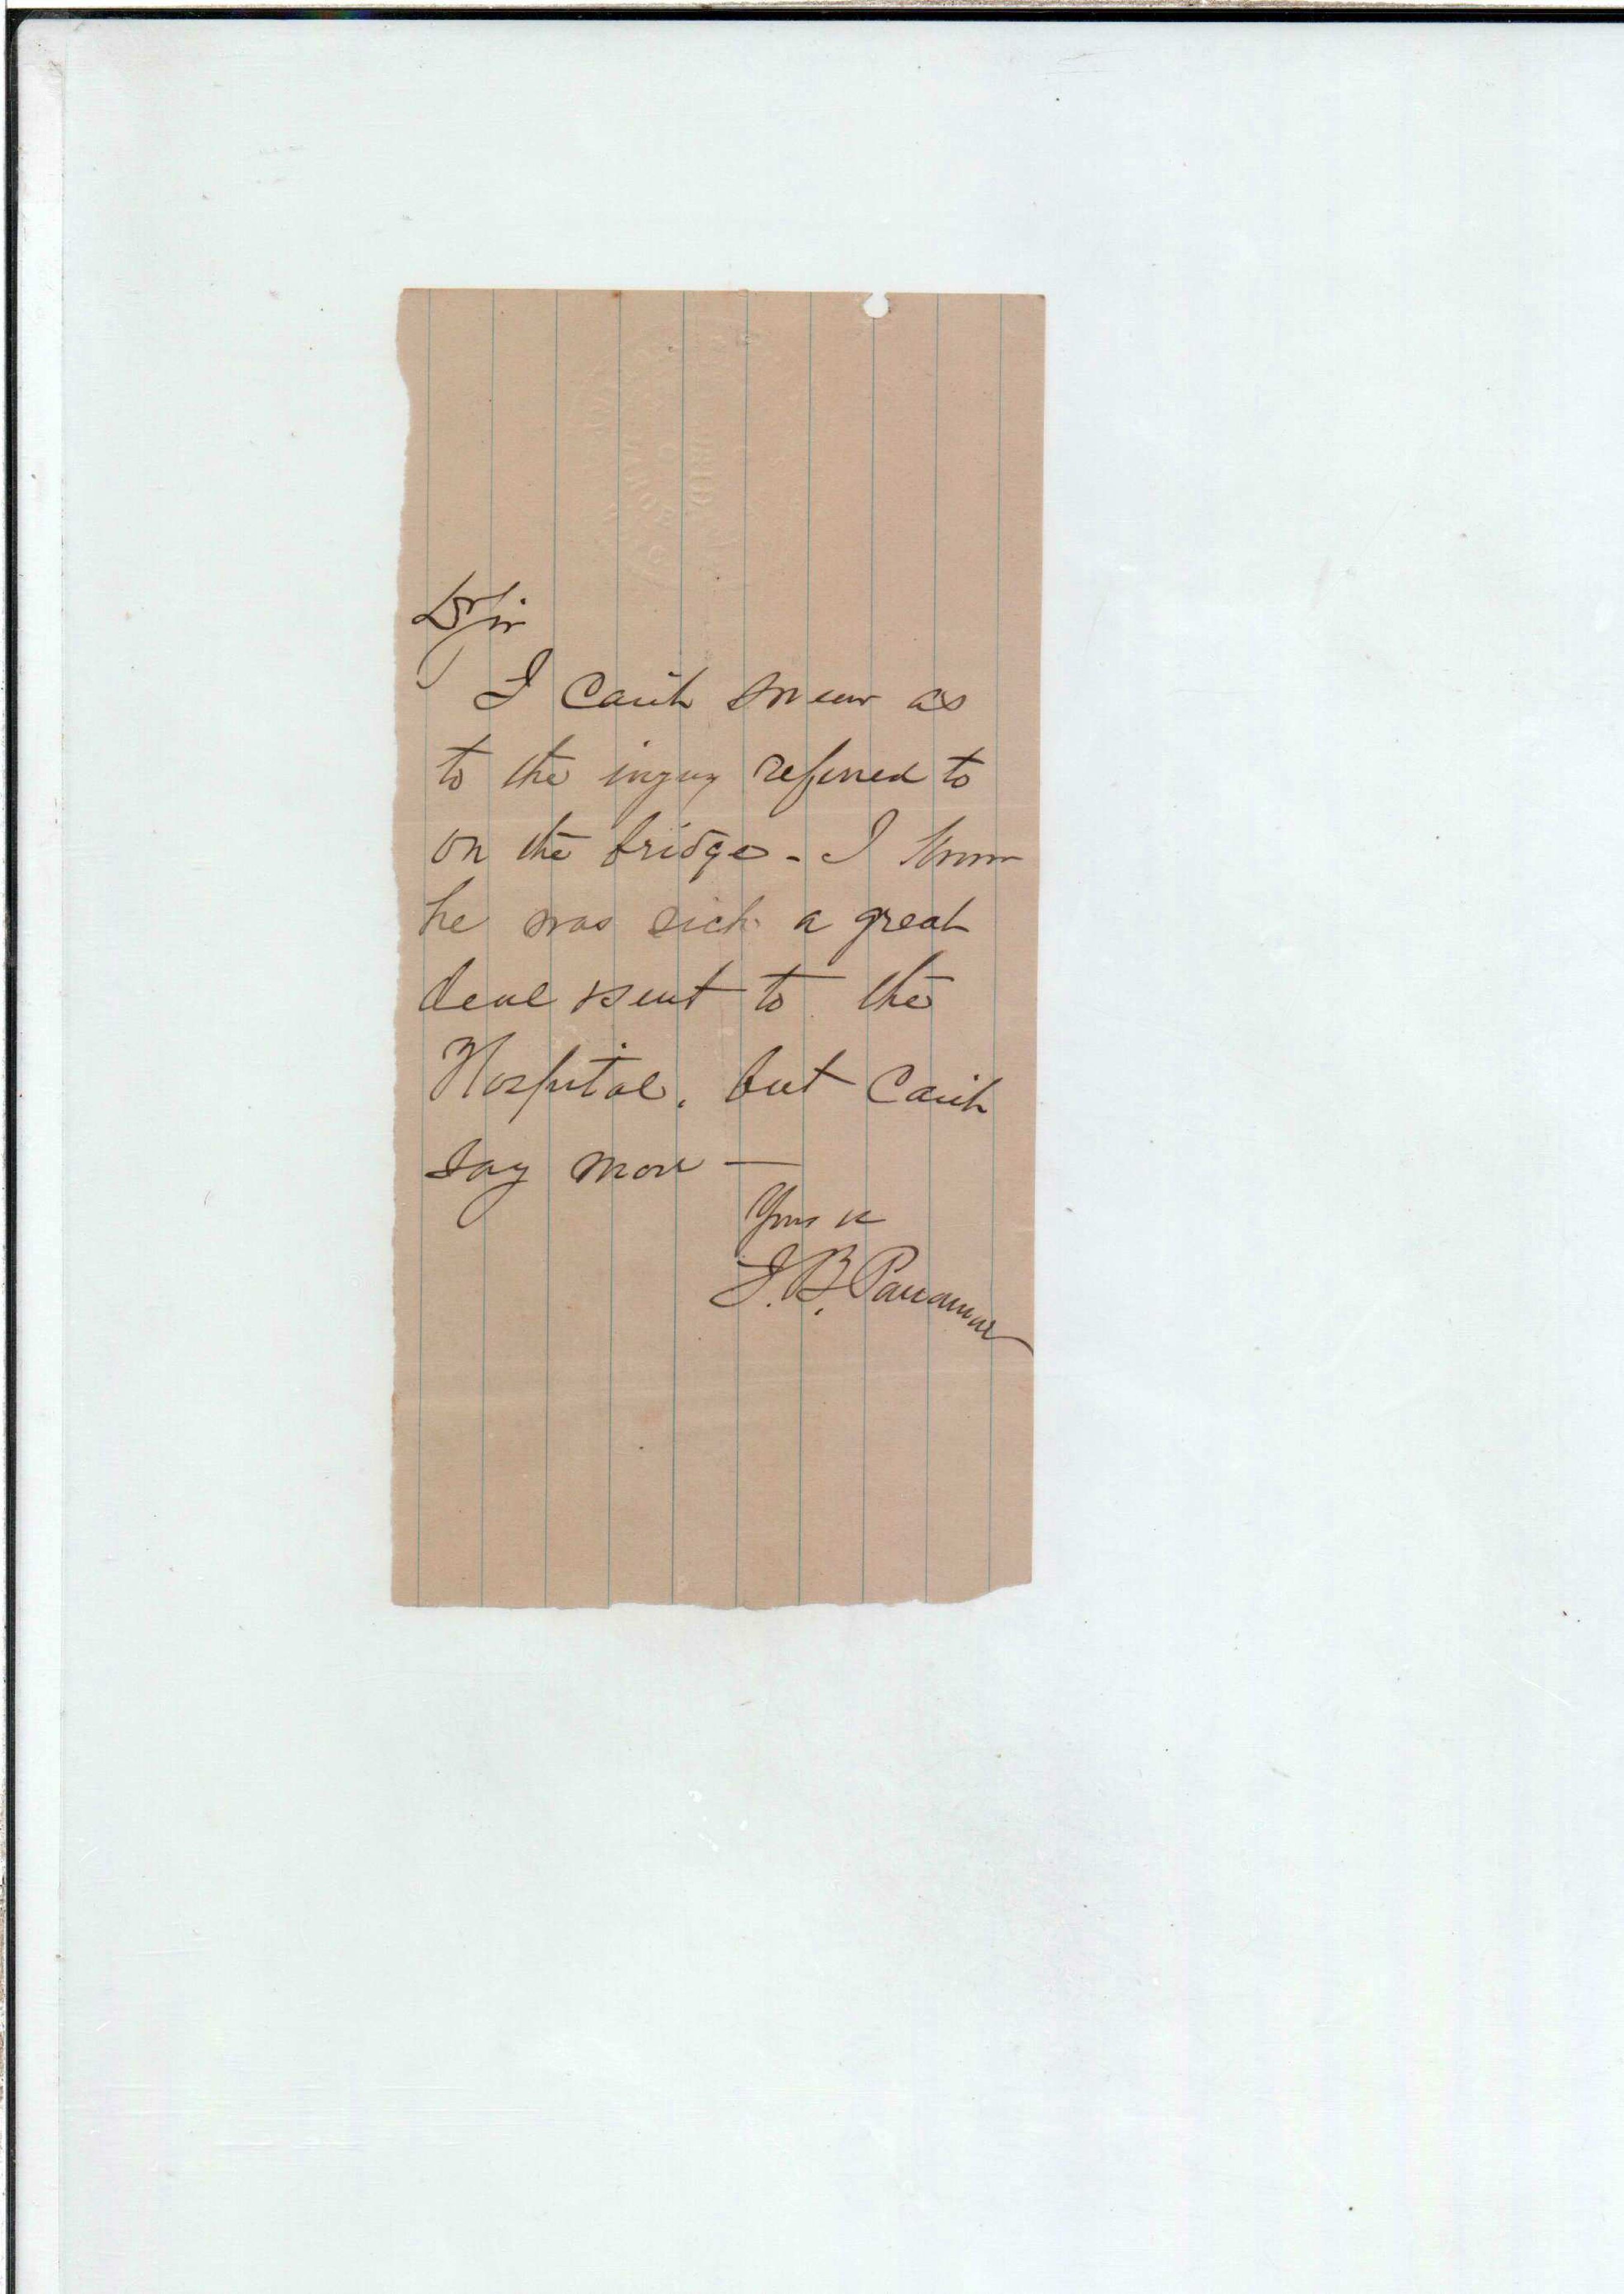 Dr Sir
I can't swear as
to the injury referred to
on the bridge - I know
he was sick a great
deal & sent to the
Hospital, but can't
say more —
Yours &c
J. B.